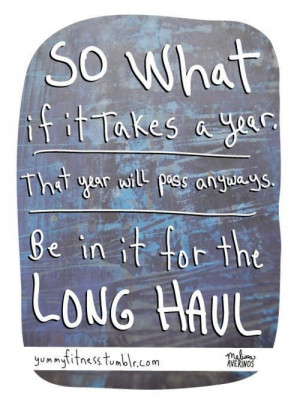 So What
if it Takes a year.
That year will pass anyways.
Be in it for the
LONG HAUL
yummyfitness.tumblr.com
melissa
AVERINOS